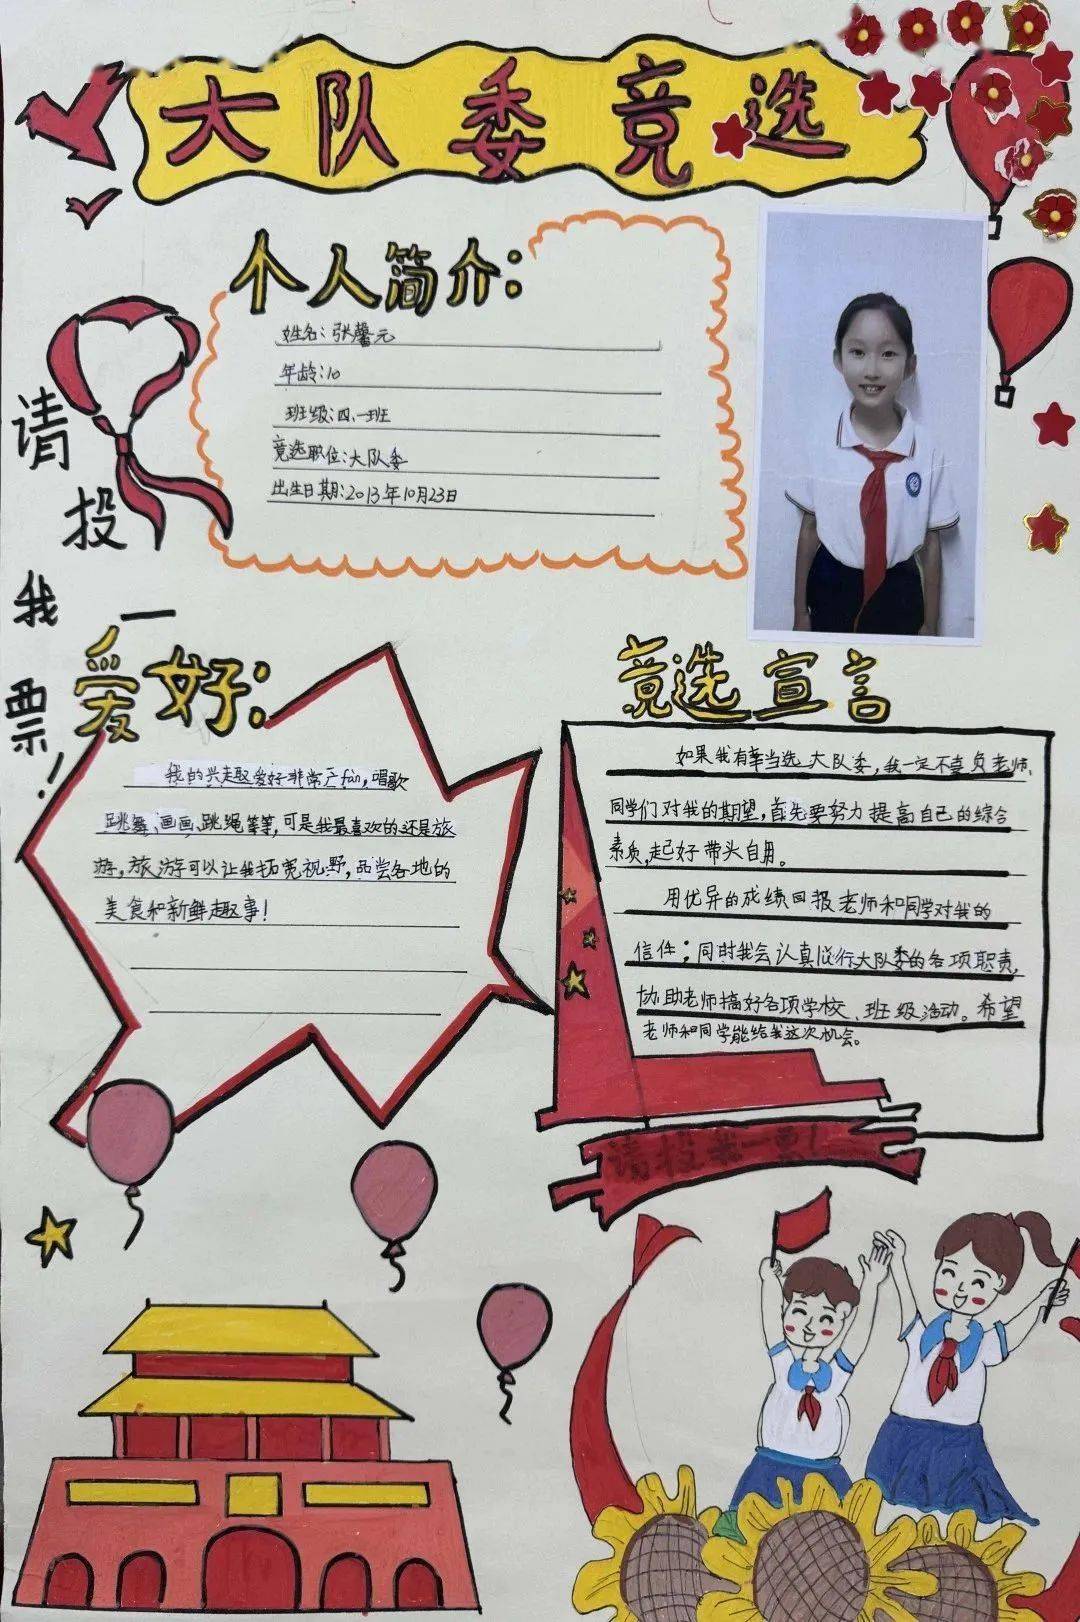 大队委竞选
个人简介：
姓名：张馨元
年龄：10
班级：四、一班
竞选职位：大队委
出生日期：2013年10月23日
请投我一票！
爱好：
我的兴趣爱好非常广fàn，唱歌
跳舞、画画、跳绳等等，可是我最喜欢的还是旅
游，旅游可以让我拓宽视野，品尝各地的
美食和新鲜趣事！
竞选宣言
如果我有幸当选大队委，我一定不辜负老师、
同学们对我的期望，首先要努力提高自己的综合
素质，起好带头自用。
用优异的成绩回报老师和同学对我的
信任；同时我会认真履行大队委的各项职责，
协助老师搞好各项学校、班级活动。希望
老师和同学能给我这次机会。
请投我一票！